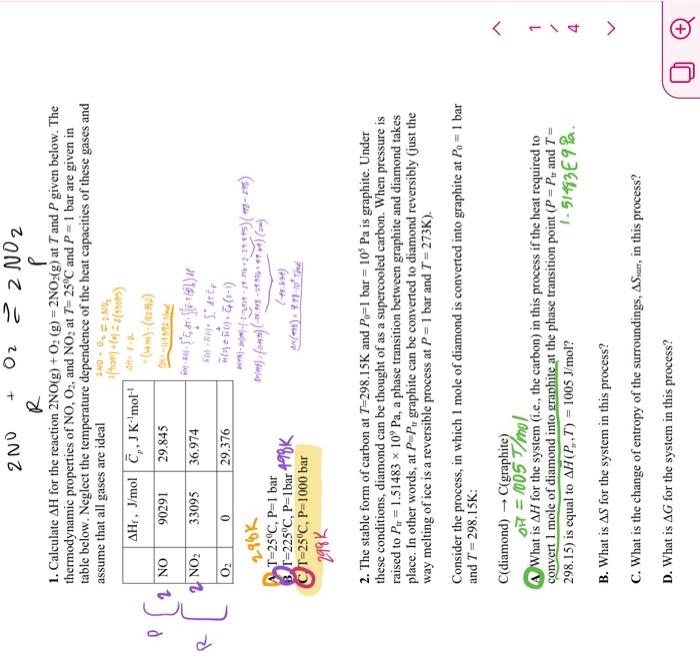 2NO + O2 ⇌ 2NO2
R P
1. Calculate ΔH for the reaction 2NO(g) + O₂ (g) = 2NO₂(g) at T and P given below. The
thermodynamic properties of NO, O₂, and NO₂ at T= 25⁰C and P = 1 bar are given in
table below. Neglect the temperature dependence of the heat capacities of these gases and
assume that all gases are ideal
ΔH_f , J/mol C̄_p, J K⁻¹mol⁻¹
P 2 NO 90291 29.845
R 2 NO₂ 33095 36.974
O₂ 0 29.376
2NO + O2 ⇌ 2NO2
ΔH = P-R
298K
A. T=25⁰C, P=1 bar
B. T=225⁰C, P=1bar 498K
C. T=25⁰C, P=1000 bar
298K
2. The stable form of carbon at T=298.15K and P₀=1 bar = 10⁵ Pa is graphite. Under
these conditions, diamond can be thought of as a supercooled carbon. When pressure is
raised to P_tr = 1.51483 × 10⁹ Pa, a phase transition between graphite and diamond takes
place. In other words, at P=P_tr graphite can be converted to diamond reversibly (just the
way melting of ice is a reversible process at P = 1 bar and T = 273K).
Consider the process, in which 1 mole of diamond is converted into graphite at P₀ = 1 bar
and T = 298.15K:
C(diamond) → C(graphite)
ΔH̄ = 1005 J/mol
A. What is ΔH for the system (i.e., the carbon) in this process if the heat required to
convert 1 mole of diamond into graphite at the phase transition point (P = P_tr and T =
298.15) is equal to ΔH(P_tr,T) = 1005 J/mol?
1.51483E9 Pa.
B. What is ΔS for the system in this process?
C. What is the change of entropy of the surroundings, ΔS_surr, in this process?
D. What is ΔG for the system in this process?
1
/
4